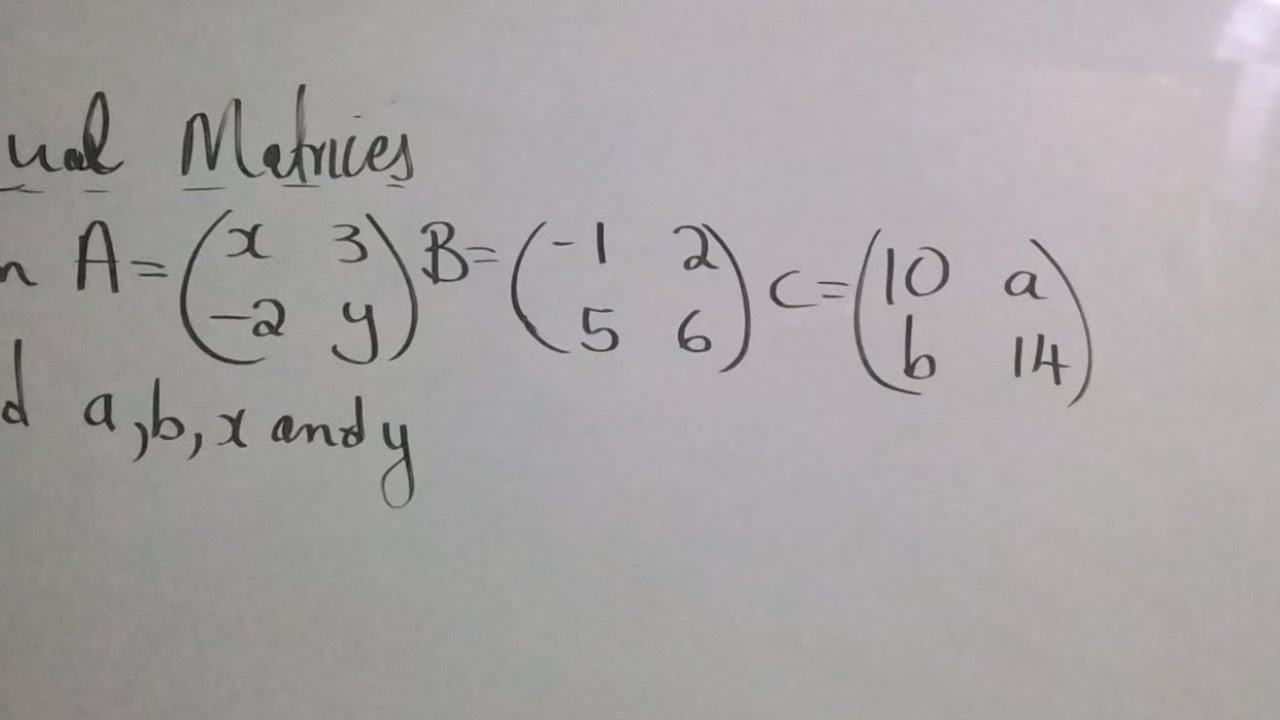 ual Matrices
n A = (x 3 -2 y) B = (-1 2 5 6) C = (10 a b 14)
d a, b, x and y